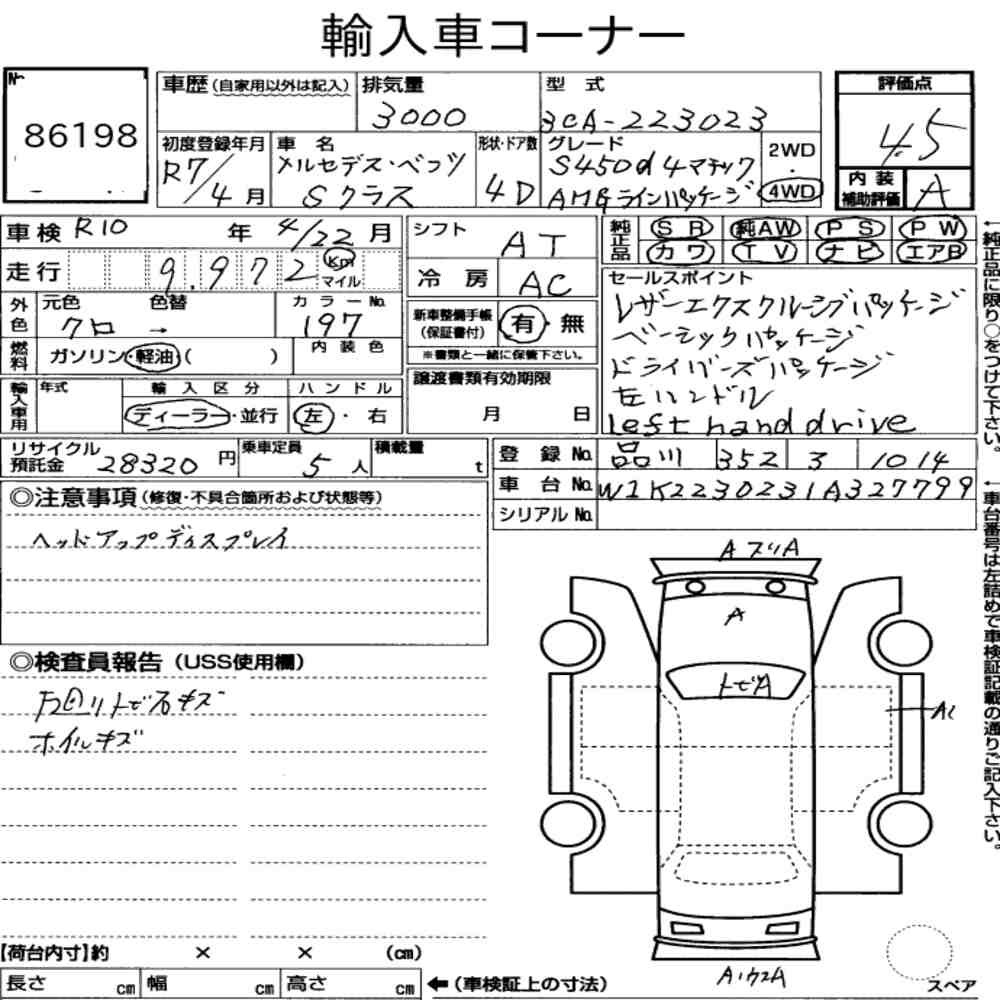 輸入車コーナー
No.
86198
車歴(自家用以外は記入)
排気量
3000
型式
3CA-223023
評価点
4.5
初度登録年月
R7/4月
車名
メルセデス・ベンツ
Sクラス
形状・ドア数
4D
グレード
S450d4マチック
AMGラインパッケージ
2WD
・
4WD
内装
補助評価
A
車検 R10年 4/22月
シフト
AT
純正品
SR 純AW PS PW
カワ TV ナビ エアB
走行 9,972 Km
マイル
冷房
AC
セールスポイント
レザーエクスクルーシブパッケージ
ベーシックパッケージ
ドライバーズパッケージ
左ハンドル
Left hand drive
外色
元色 色替
クロ →
カラーNo.
197
新車整備手帳
(保証書付)
有・無
※書類と一緒に保管下さい。
燃料
ガソリン・軽油( )
内装色
譲渡書類有効期限
月 日
輸入車用
年式
輸入区分
ディーラー・並行
ハンドル
左・右
リサイクル
預託金 28320円
乗車定員
5人
積載量
t
登録No. 品川 352 3 1014
車台No. W1K2230231A327799
シリアルNo.
◎注意事項(修復・不具合箇所および状態等)
ヘッドアップディスプレイ
◎検査員報告(USS使用欄)
万回りトビ石キズ
ホイルキズ
AスリA
A
トビA
A1
A1ウスA
スペア
【荷台内寸】約 × × (cm)
長さ cm 幅 cm 高さ cm ←(車検証上の寸法)
←純正品に限り○をつけて下さい。
←車台番号は左詰めで車検証記載の通りご記入下さい。